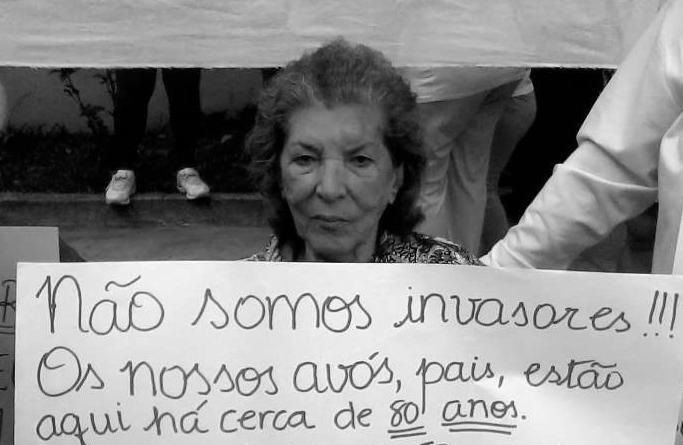 Não somos invasores!!!
Os nossos avós, pais, estão
aqui há cerca de 80 anos.